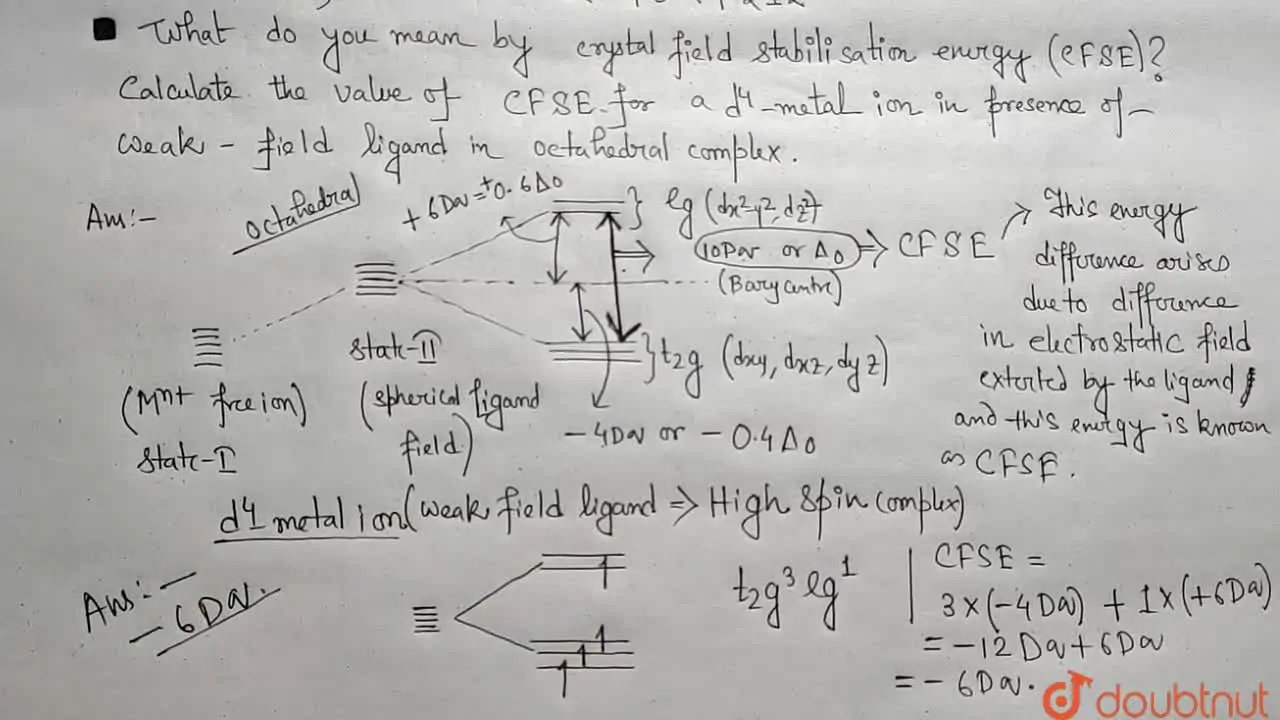 What do you mean by crystal field stabilisation energy (CFSE)?
Calculate the value of CFSE for a d4-metal ion in presence of-
weak-field ligand in octahedral complex.
Ans:-
octahedral
+6Dq=+0.6Δo
eg (dx2-y2, dz2)
10Dq or Δo => CFSE
(Bary centre)
t2g (dxy, dxz, dyz)
-4Dq or -0.4Δo
This energy
difference arises
due to difference
in electrostatic field
exterted by the ligand,
and this energy is known
as CFSE.
(Mn+ free ion)
State-I
State-II
(spherical ligand
field)
d4 metal ion (weak field ligand => High spin complex)
Ans:-
-6Dq.
t2g3 eg1
CFSE =
3×(-4Dq) + 1×(+6Dq)
= -12Dq+6Dq
= -6Dq.
doubtnut